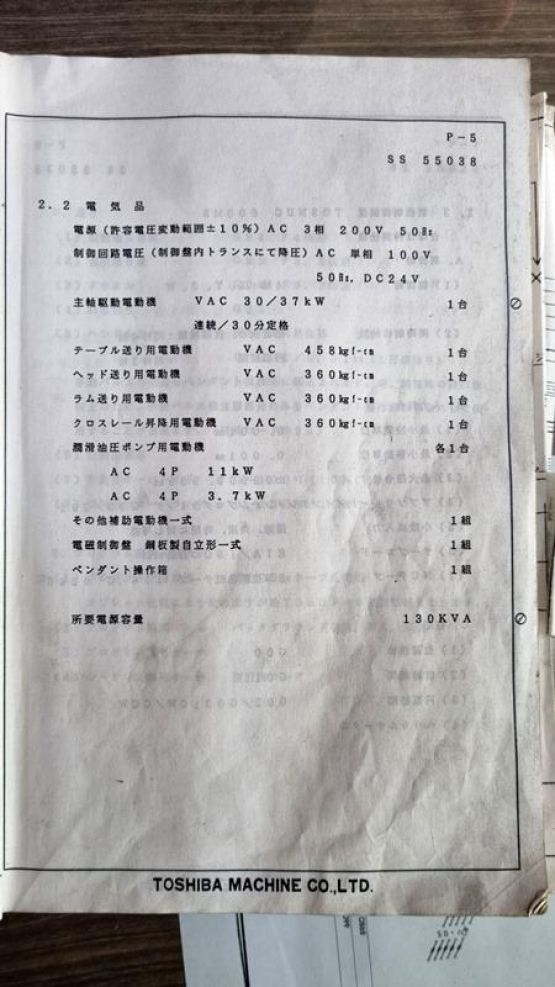 P-5
SS 55038
2.2 電気品
電源(許容電圧変動範囲±10%)AC 3相 200V 50Hz
制御回路電圧(制御盤内トランスにて降圧)AC 単相 100V
50Hz, DC24V
主軸駆動電動機 VAC 30/37kW 1台
連続/30分定格
テーブル送り用電動機 VAC 458kgf-cm 1台
ヘッド送り用電動機 VAC 360kgf-cm 1台
ラム送り用電動機 VAC 360kgf-cm 1台
クロスレール昇降用電動機 VAC 360kgf-cm 1台
潤滑油圧ポンプ用電動機 各1台
AC 4P 11kW
AC 4P 3.7kW
その他補助電動機一式 1組
電磁制御盤 鋼板製自立形一式 1組
ペンダント操作箱 1組
所要電源容量 130KVA
TOSHIBA MACHINE CO.,LTD.